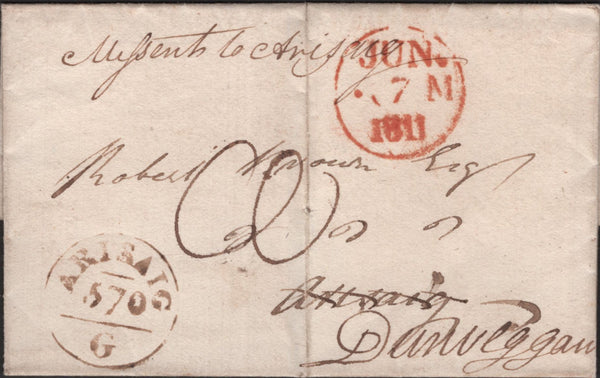 Missent to Arisaig
JUN.
7 M
1811
Robert Brown Esqr
ARISAIG
570
G
Arisaig
Dunveggan